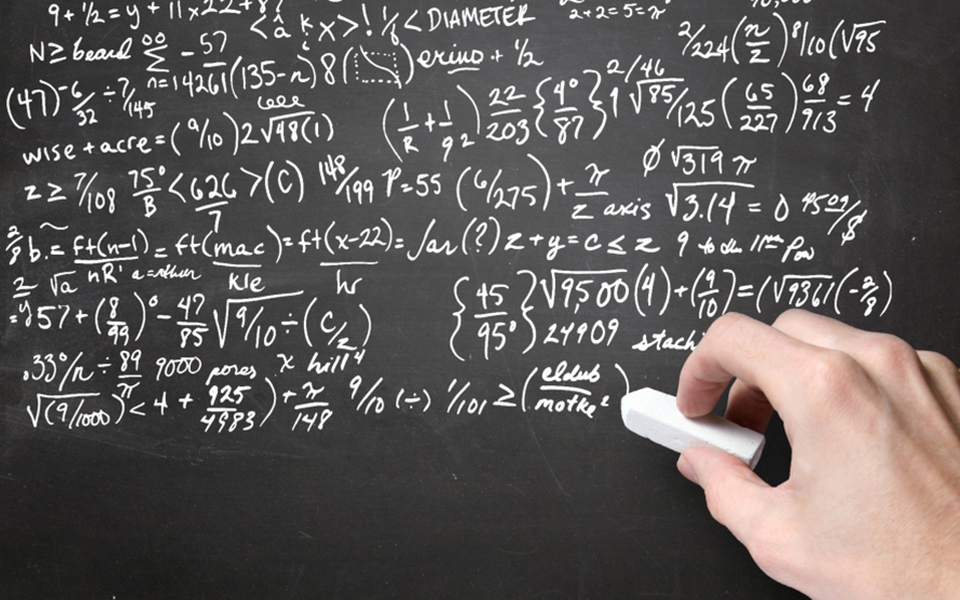 9 + 1/2 = y + 11 x 22 + 8
< â k x > ! 1/6 < DIAMETER
2+2=5=π
N ≥ beard ∞ Σ n=14261 -57 (135-n) 8 ( ) erino + 1/2
2/224 (n/z) 8/10 (√95
(47) -6/32 ÷ 7/145
wise + acre = (9/10) 2 √48(1)
(1/R + 1/g2) 22/203 {4°/87} 9 2/46 √85/125 (65/227) 68/913 = 4
z ≥ 7/108 75°/B < 626/7 > (C) 148/199 P=55 (6/275) + π/z axis
∅ √319 π
√3.14 = 0
2/8 b. = ft(n-1)/nR' = ft(mac)/kle = ft(x-22)/hr = far(?) z + y = c ≤ z 9 to the 11th pow
√a
= 57 + (8/99)° - 47/85 √9/10 ÷ (C/2)
{45/95°} √9,500 (4) + (9/10) = (√9361 (-2/8)
24909 stachi
.33°/n ÷ 89/π 9000 pores x hill 4
√(9/1000) < 4 + 925/4983) + π/148 9/10 (÷) 1/101 ≥ (eldub/motke²)